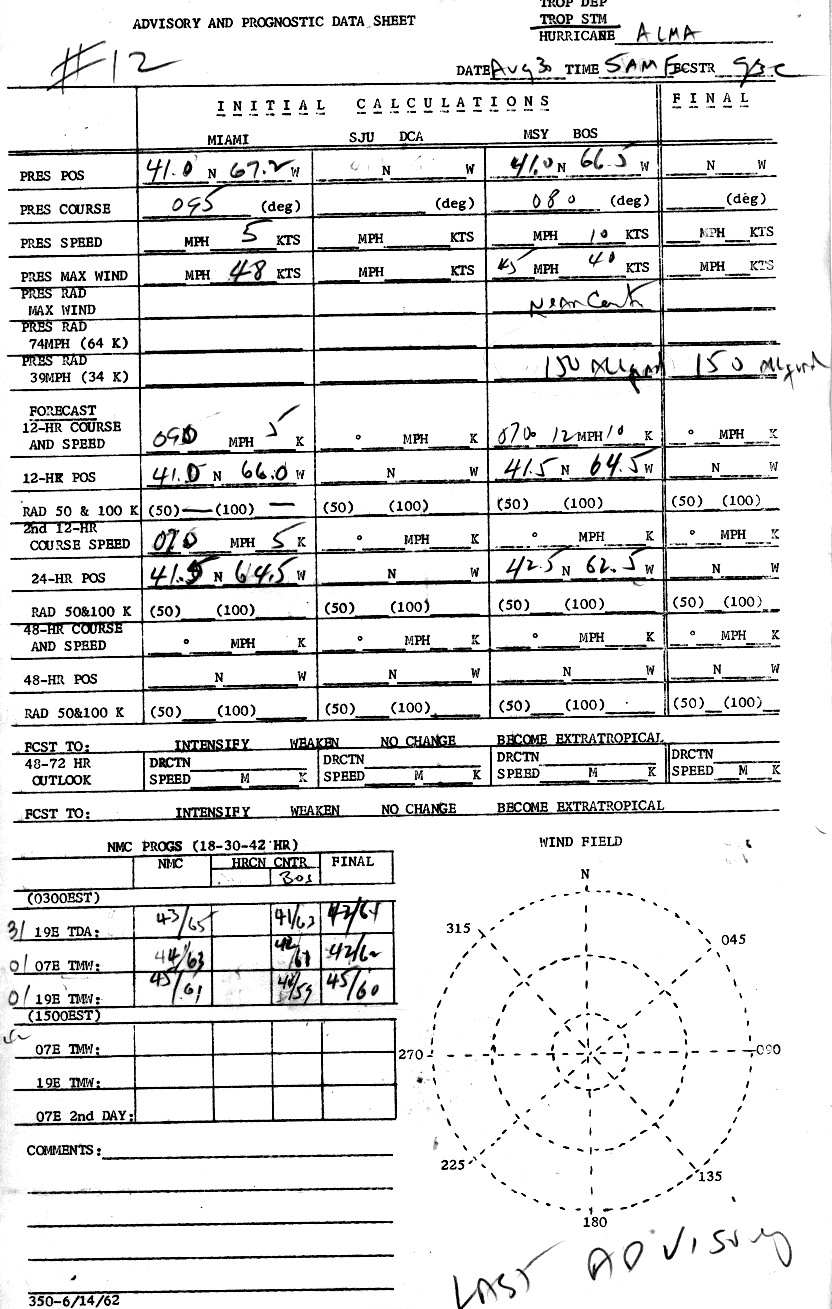 TROP DEP
ADVISORY AND PROGNOSTIC DATA SHEET TROP STM
HURRICANE ALMA
#12
DATE Aug 30 TIME 5AM FCSTR
INITIAL CALCULATIONS FINAL
MIAMI SJU DCA MSY BOS
PRES POS 41.0 N 67.2 W N W 41.0 N 66.5 W N W
PRES COURSE 095 (deg) (deg) 080 (deg) (deg)
PRES SPEED MPH 5 KTS MPH KTS MPH 10 KTS MPH KTS
PRES MAX WIND MPH 48 KTS MPH KTS 45 MPH 40 KTS MPH KTS
PRES RAD
MAX WIND Near Cent
PRES RAD
74MPH (64 K)
PRES RAD
39MPH (34 K) 150 All quad 150 All quad
FORECAST
12-HR COURSE
AND SPEED 090 MPH 5 K ° MPH K 070 12 MPH 10 K ° MPH K
12-HR POS 41.0 N 66.0 W N W 41.5 N 64.5 W N W
RAD 50 & 100 K (50) — (100) — (50) (100) (50) (100) (50) (100)
2nd 12-HR
COURSE SPEED 070 MPH 5 K ° MPH K ° MPH K ° MPH K
24-HR POS 41.5 N 64.5 W N W 42.5 N 62.5 W N W
RAD 50&100 K (50) (100) (50) (100) (50) (100) (50) (100)
48-HR COURSE
AND SPEED ° MPH K ° MPH K ° MPH K ° MPH K
48-HR POS N W N W N W N W
RAD 50&100 K (50) (100) (50) (100) (50) (100) (50) (100)
FCST TO: INTENSIFY WEAKEN NO CHANGE BECOME EXTRATROPICAL
48-72 HR DRCTN DRCTN DRCTN DRCTN
OUTLOOK SPEED M K SPEED M K SPEED M K SPEED M K
FCST TO: INTENSIFY WEAKEN NO CHANGE BECOME EXTRATROPICAL
NMC PROGS (18-30-42 HR) WIND FIELD
NMC HRCN CNTR FINAL
Bos
(0300EST)
31 19E TDA: 43/65 41/63 42/64
01 07E TMW: 44/63 42/61 42/62
01 19E TMW: 45/61 42/59 45/60
(1500EST)
07E TMW:
19E TMW:
07E 2nd DAY:
N
315 045
270 090
225 135
180
COMMENTS:
LAST ADVISORY
350-6/14/62